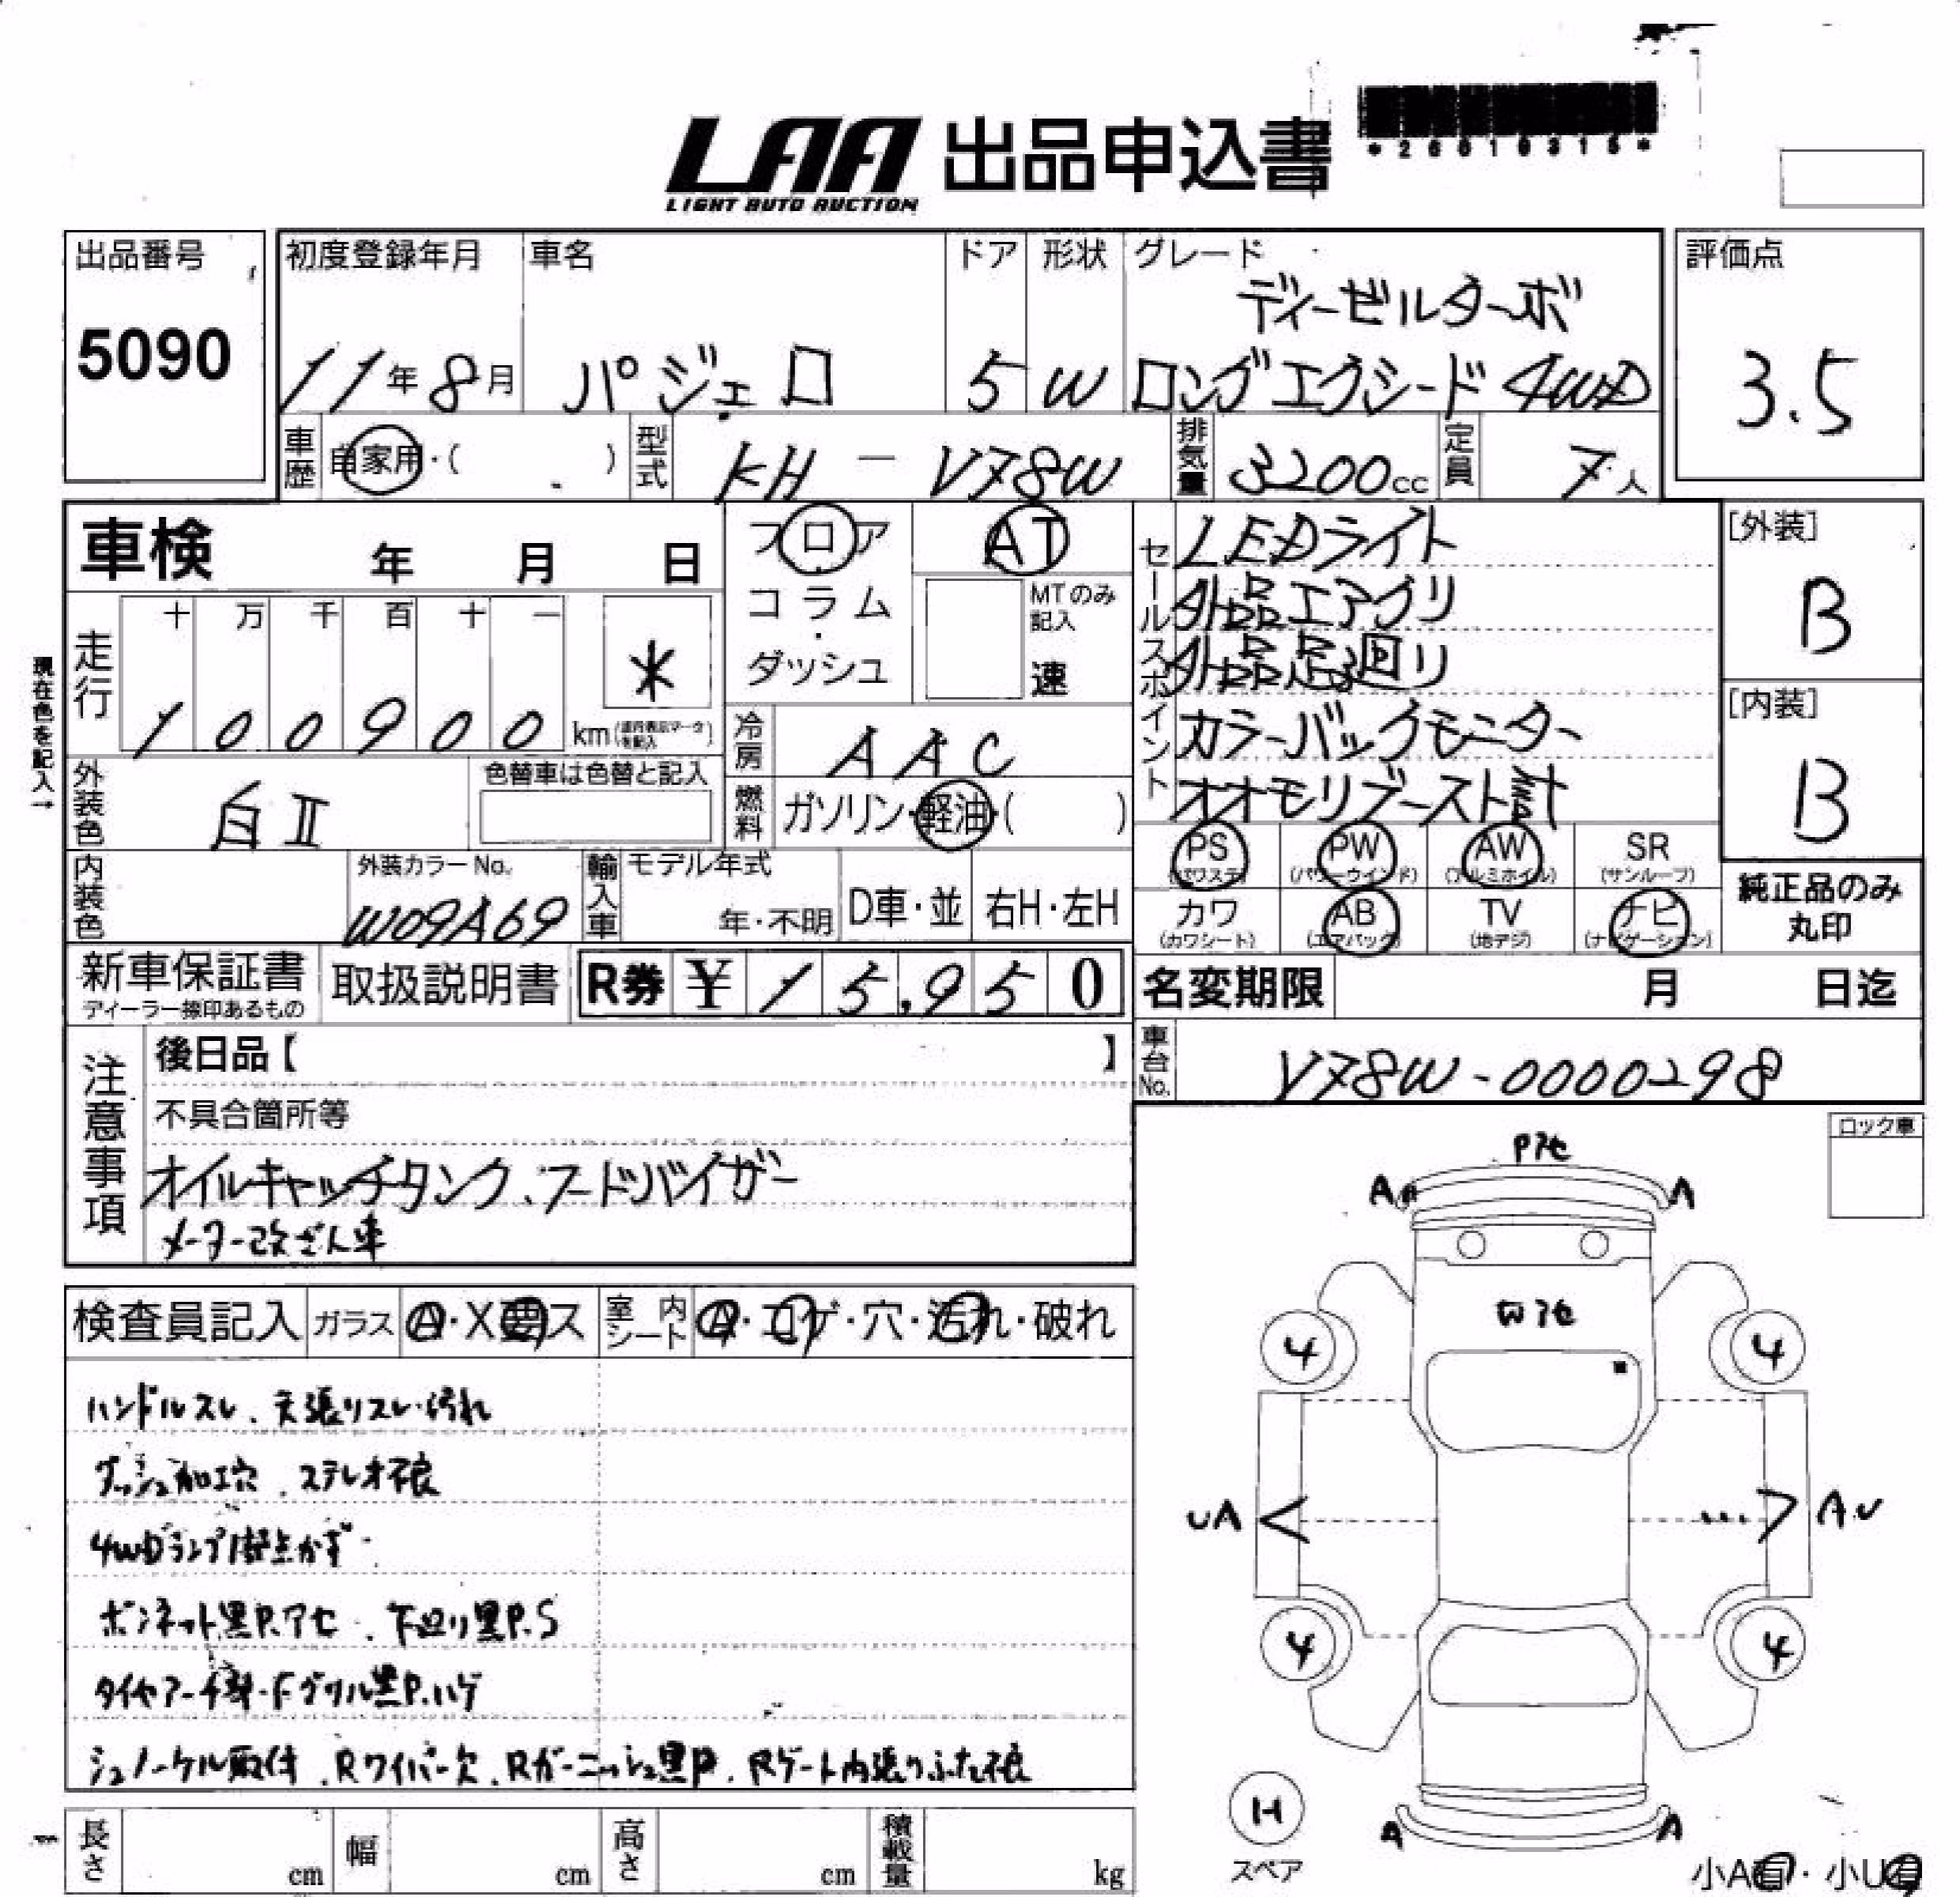 LAA 出品申込書
LIGHT AUTO AUCTION
*26010315*
出品番号
5090
初度登録年月
11年8月
車名
パジェロ
ドア
5
形状
W
グレード
ディーゼルターボ
ロングエクシード4WD
評価点
3.5
車歴
自家用・( )
型式
KH-V78W
排気量
3200cc
定員
7人
車検 年 月 日
フロア
コラム・
ダッシュ
AT
MTのみ
記入
速
現在色を記入→
走行
十 万 千 百 十 一
100900 km
*
外装色
白II
色替車は色替と記入
冷房
AAC
燃料
ガソリン・軽油・( )
セールスポイント
LEDライト
外品エアクリ
外品足回り
カラーバックモニター
オオモリブースト計
[外装]
B
[内装]
B
内装色
外装カラーNo.
W09A69
輸入車
モデル年式
年・不明
D車・並
右H・左H
PS PW AW SR
(パワステ) (パワーウインド) (アルミホイル) (サンルーフ)
カワ AB TV ナビ
(カワシート) (エアバック) (地デジ) (ナビゲーション)
純正品のみ
丸印
新車保証書
ディーラー捺印あるもの
取扱説明書
R券 ¥15,950
名変期限 月 日迄
車台No.
V78W-0000298
注意事項
後日品【 】
不具合箇所等
オイルキャッチタンク、フードバイザー
メーター改ざん車
ロック車
検査員記入
ガラス
A・X要ス
室内シート
A・コゲ・穴・汚れ・破れ
ハンドルスレ、天張りスレ・汚れ
ダッシュ加工穴、ステレオ不良
4WDランプ1部点かず
ボンネット黒P.アセ、下廻り黒P.S
タイヤアーチ部・Fグリル黒P.ハゲ
シュノーケル取付、Rワイパー欠、Rガーニッシュ黒P、Rゲート内張りふた不良
Pアセ
A A
4 4
UA AU
4 4
H
スペア
A A
小A有・小U有
長さ cm
幅 cm
高さ cm
積載量 kg